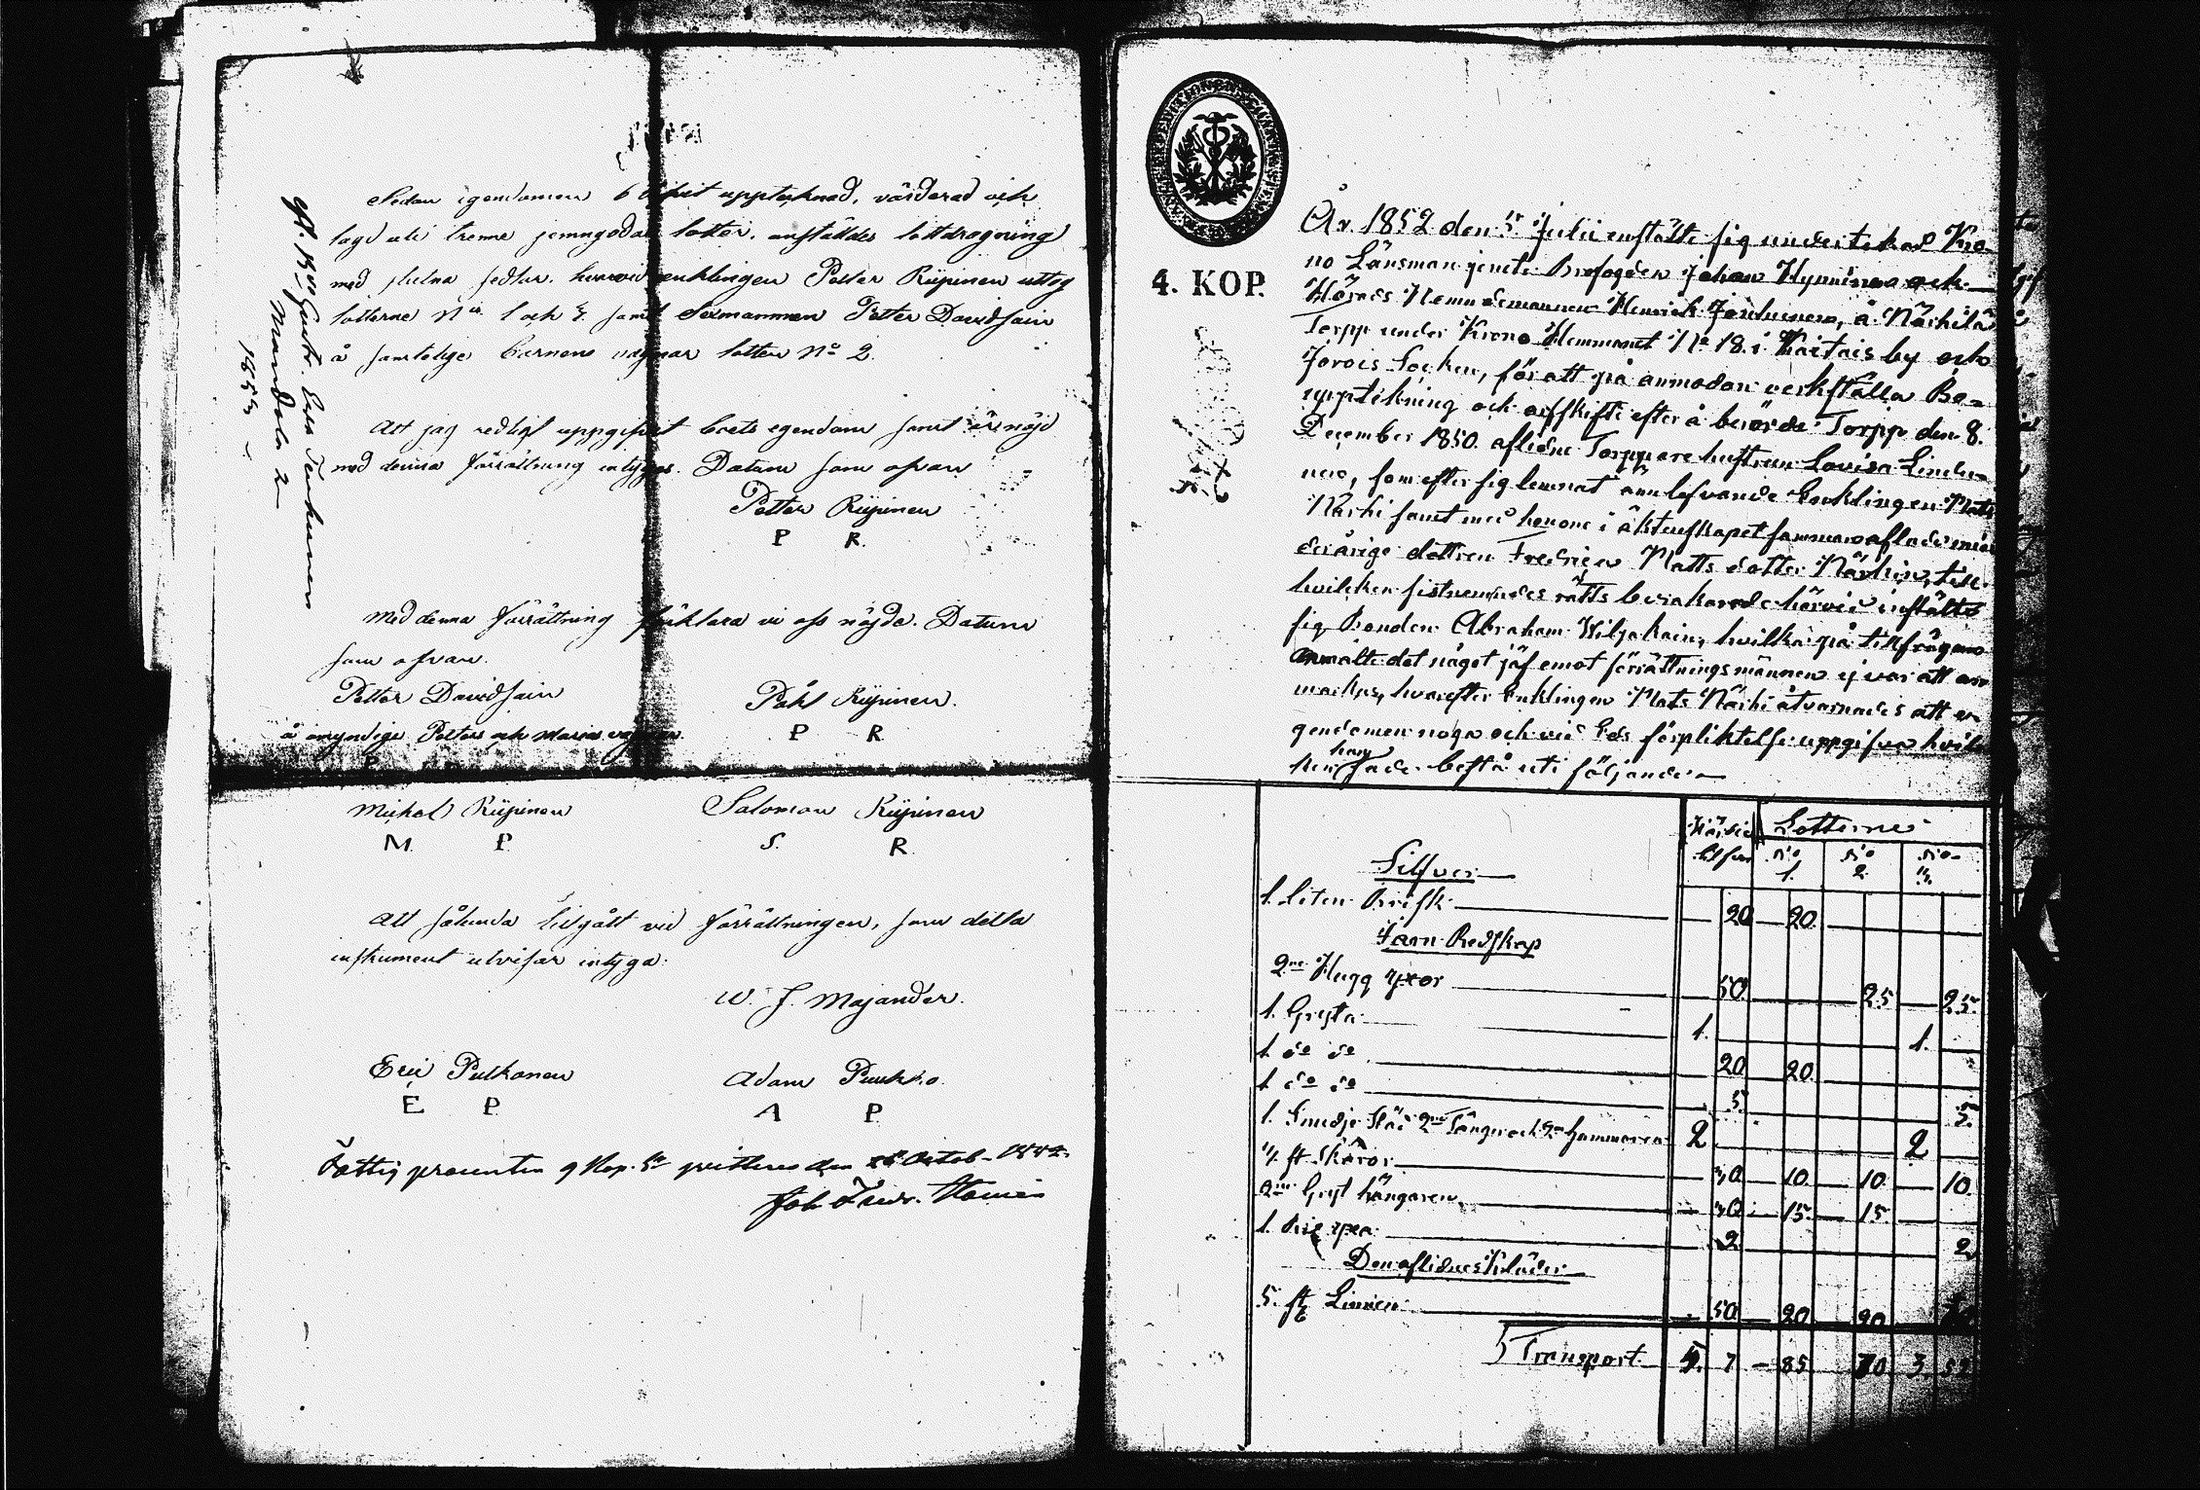 Sedan egendomen blifvit upptecknad, värderad och
lagd uti trenne jemngoda lotter, anställdes lottdragning
med slutna sedlar, hvarvid enklingen Petter Riipinen uttog
lotterne N:is 1 och 3. samt Sexmannen Petter Davidsain
å samtelige barnens vägnar lotten No 2.
Att jag redligt uppgifvit boets egendom samt är nöjd
med denna förrättning intygas. Datum som ofvan
Petter Riipinen
P R.
Med denna förrättning förklara vi oss nöjde. Datum
som ofvan.
Petter Davidsain
Påhl Riipinen.
å omyndige Petters och Marias vägnar
P R
P
Michel Riipinen
Salomon Riipinen
M. P.
S. R.
Att sålunda tilgått vid förrättningen, som detta
instrument utvisar intyga:
W. J. Majander.
Eric Pulkonen
Adam Puukko.
E P.
A P.
Fattig procenten 9 Kop. Sr qvitteras den Octob. 1852.
Joh Fredr.
1853
4. KOP.
År 1852 den 5. Julii instälte sig undertecknad Kro-
no Länsman jemte Brofogden Johan Hynninen och
Härads Nemndemannen Henrick, å Närhilä
Torpp under Krono Hemmanet No 18. i Kaitais by och
Jorois Socken, för att på anmodan verkställa Bo-
upptekning och arfskifte efter å berörde Torpp den 8.
December 1850. aflidne Torppare hustrun Lovisa Linde-
nen, som efter sig lemnat ännu lefvande Enklingen Mats
Närhi samt med honom i äktenskapet sammanaflade min-
deråriga dottren Fredrica Matts dotter Närhin, till
hvilcken sistnemndes rätts bevakande härvid instälte
sig Bonden Abraham Wiljakain, hvilka på tillfrågan
anmälte det något jäf emot förrättningsmännen ej var att an-
märkas, hvarefter Enklingen Mats Närhi åtvarnades att e-
gendomen noga och vid Eds förpliktelse uppgifva hvil-
han
ken sade bestå uti följande:
Lotterne
No 1. No 2. No 3.
Silfver
1. liten Brisk 20 20
Järn Redskap
2ne Hugg yxor 50. 25 25.
1. Gryta 1. 1.
1 do do 20 20.
1 do do 5. 5.
1. Smedje Städ 2ne Tänger och 2ne hammaren 2 2
3. st Skäror 30 10. 10. 10.
2ne Gryt hängaren 30. 15. 15.
1. yxa 2 2
Den aflidnes Kläder
5. st Linnen 50. 20. 20
Transport 5. 7 85 70 3. 52